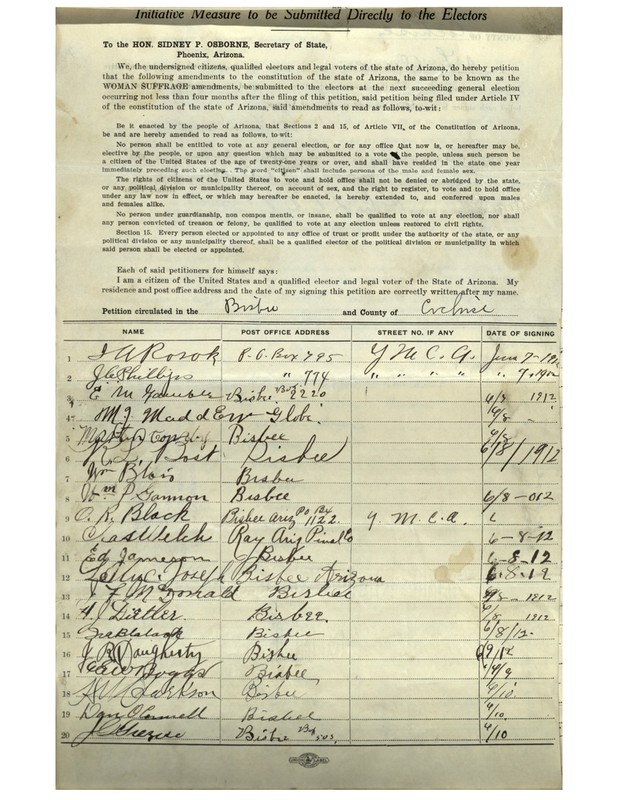 Initiative Measure to be Submitted Directly to the Electors
To the HON. SIDNEY P. OSBORNE, Secretary of State,
Phoenix, Arizona.
We, the undersigned citizens, qualified electors and legal voters of the state of Arizona, do hereby petition
that the following amendments to the constitution of the state of Arizona, the same to be known as the
WOMAN SUFFRAGE amendments, be submitted to the electors at the next succeeding general election
occurring not less than four months after the filing of this petition, said petition being filed under Article IV
of the constitution of the state of Arizona, said amendments to read as follows, to-wit:
Be it enacted by the people of Arizona, that Sections 2 and 15, of Article VII, of the Constitution of Arizona,
be and are hereby amended to read as follows, to wit:
No person shall be entitled to vote at any general election, or for any office that now is, or hereafter may be,
elective by the people, or upon any question which may be submitted to a vote the people, unless such person be
a citizen of the United States of the age of twenty-one years or over, and shall have resided in the state one year
immediately preceding such election. The word "citizen" shall include persons of the male and female sex.
The rights of citizens of the United States to vote and hold office shall not be denied or abridged by the state,
or any political division or municipality thereof, on account of sex, and the right to register, to vote and to hold office
under any law now in effect, or which may hereafter be enacted, is hereby extended to, and conferred upon males
and females alike.
No person under guardianship, non compos mentis, or insane, shall be qualified to vote at any election, nor shall
any person convicted of treason or felony, be qualified to vote at any election unless restored to civil rights.
Section 15. Every person elected or appointed to any office of trust or profit under the authority of the state, or any
political division or any municipality thereof, shall be a qualified elector of the political division or municipality in which
said person shall be elected or appointed.
Each of said petitioners for himself says:
I am a citizen of the United States and a qualified elector and legal voter of the State of Arizona. My
residence and post office address and the date of my signing this petition are correctly written after my name.
Petition circulated in the Bisbee and County of Cochise
NAME POST OFFICE ADDRESS STREET NO. IF ANY DATE OF SIGNING
1 P.O. Box 795 Y M C A. June 7-
2 J C Phillips " 774 " " " " " 7.
3 E M Bisbee Box 2220 6/8 1912
4 M. J. Globe. 6/8
5 Bisbee 6/8
6 R. L. Post Bisbee 6/8/1912
7 Wm Blair Bisbee
8 Wm P Gannon Bisbee 6/8-
9 O. K. Black Bisbee Ariz PO Bx 1122. Y. M. C. A.
10 Chas Welch Ray Ariz Pinal Co 6-8-12
11 Ed Jameson Bisbee 6-8-12
12 Joseph Bisbee Arizona 6-8-12
13 J F McDonald Bisbee 6/8-1912
14 Bisbee. 6/8 1912
15 Bisbee 6/8/12.
16 J R Daugherty Bisbee 6/9/12
17 Boggs Bisbee 6/9
18 Jackson Bisbee 6/10
19 Dan O'Connell Bisbee 6/10.
20 Bisbee Box 6/10